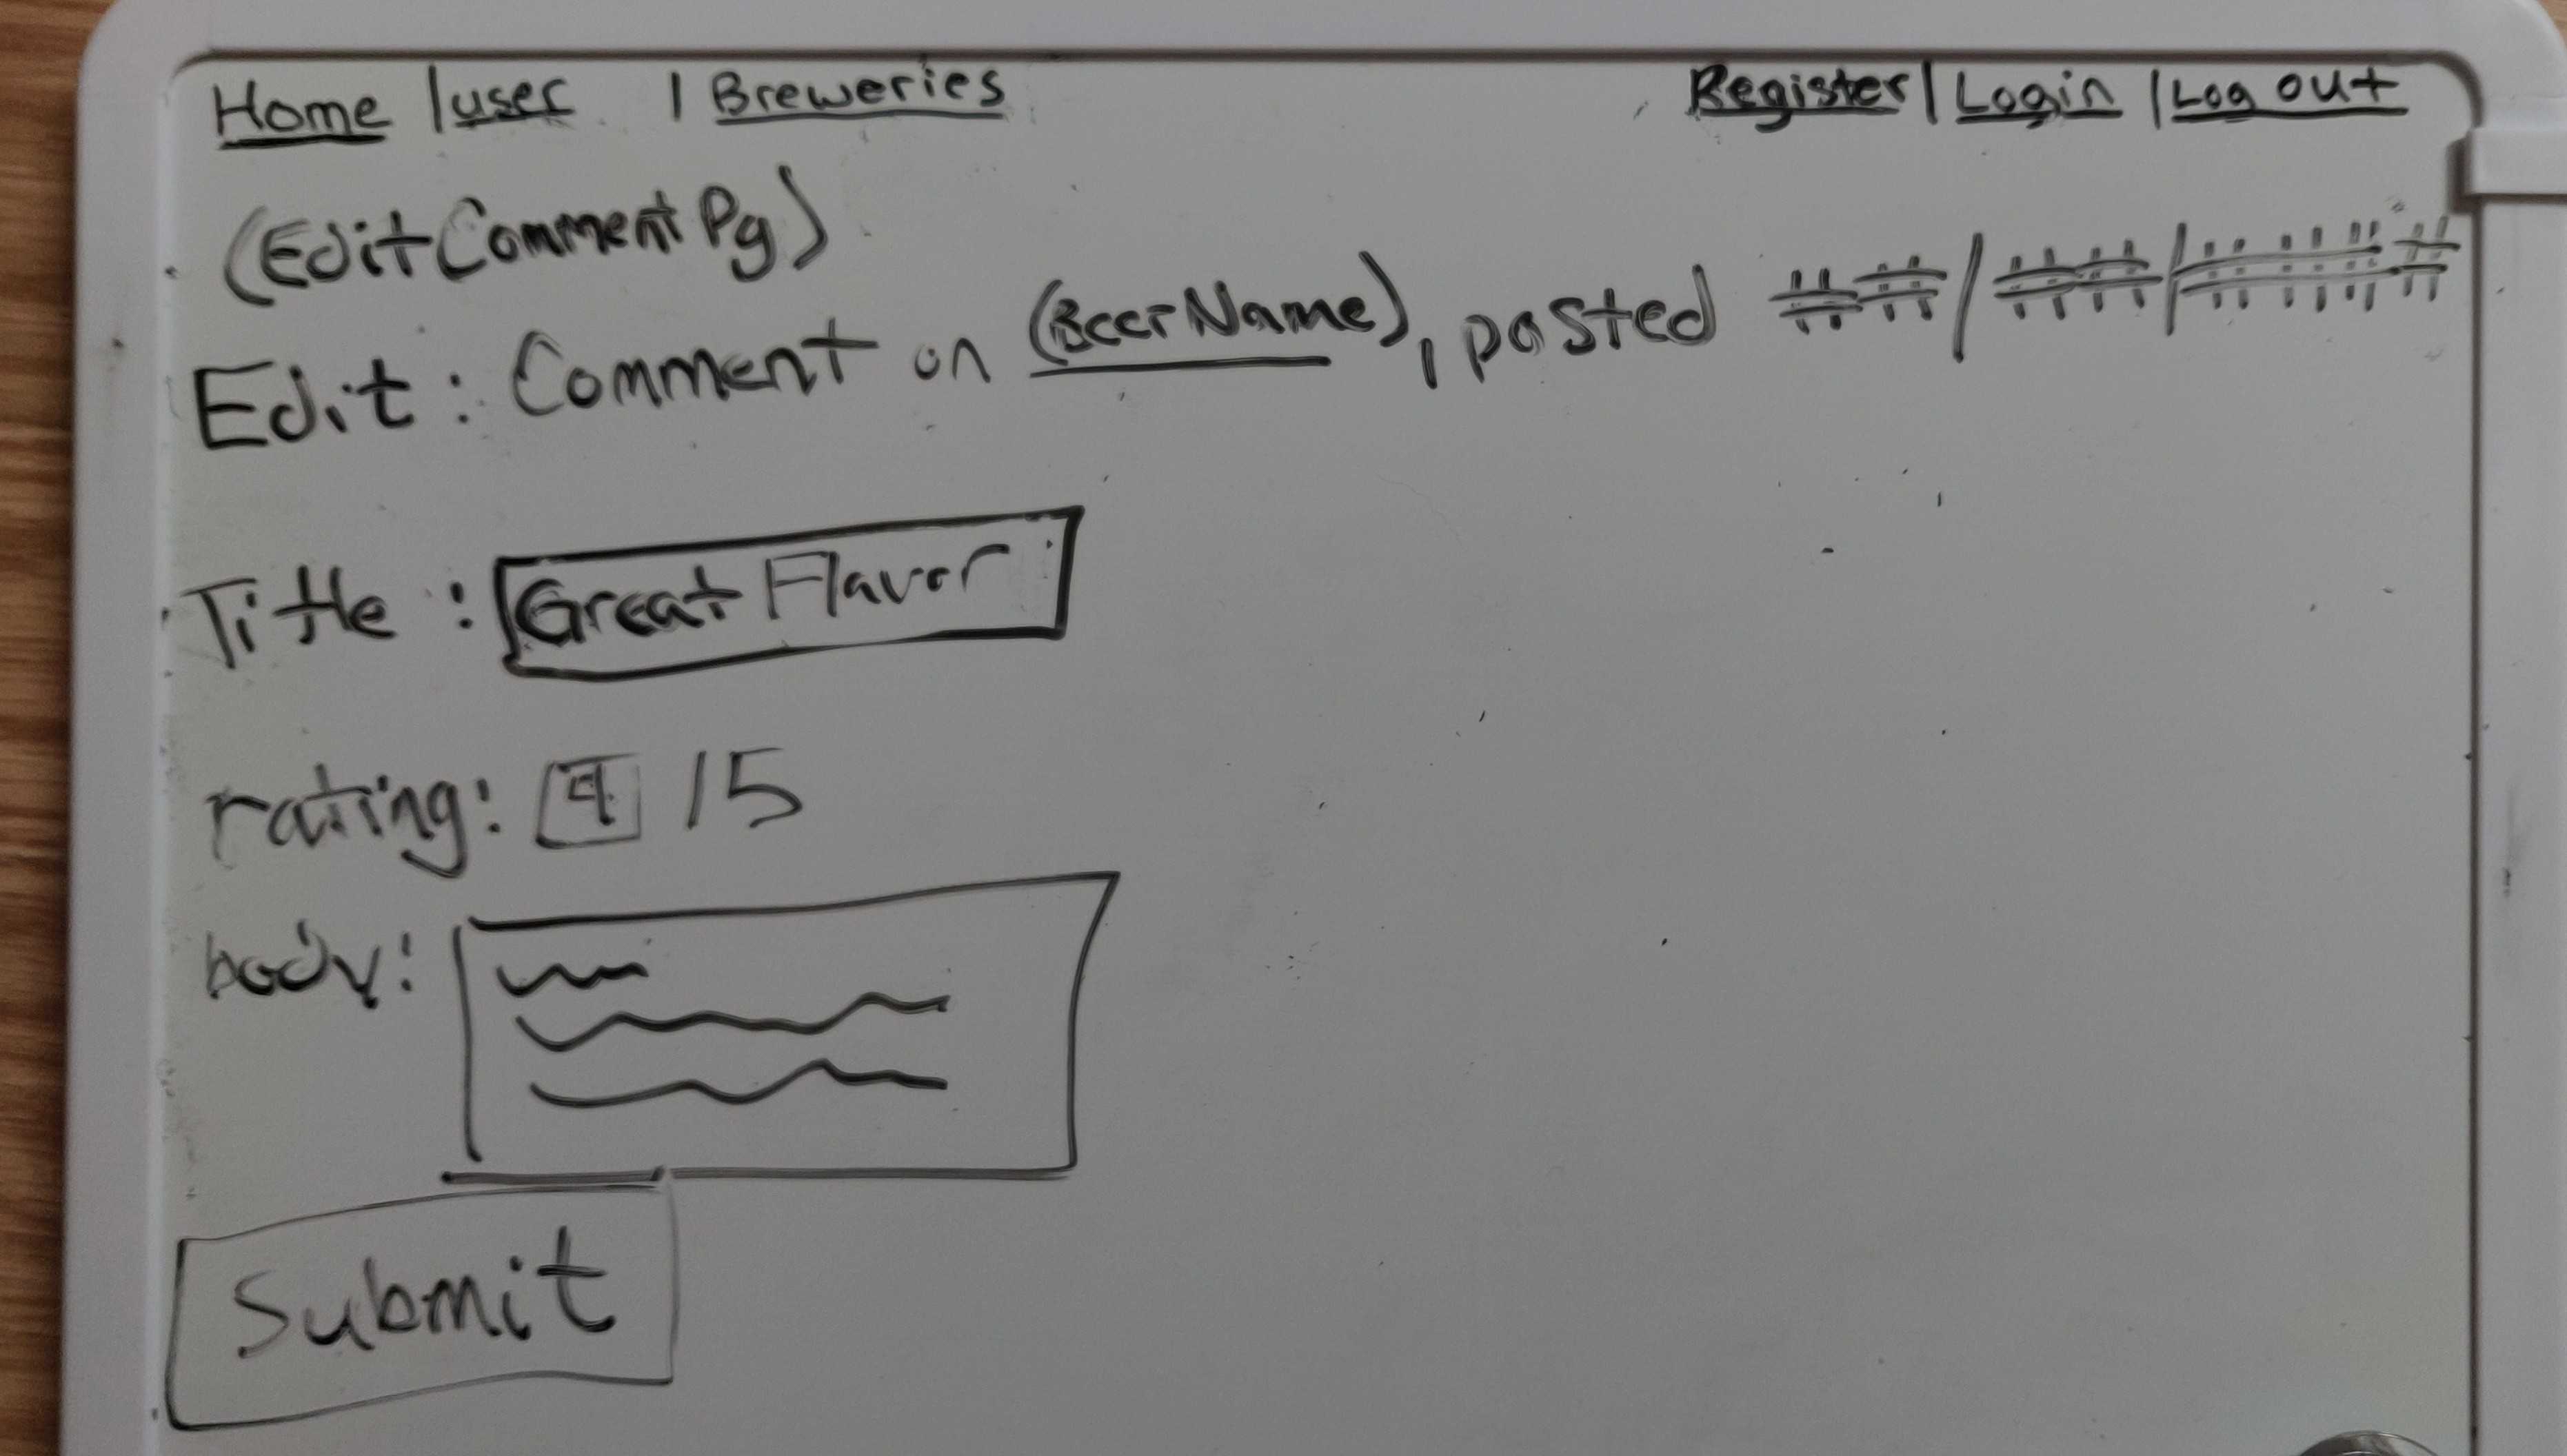 Home | user | Breweries Register | Login | Log out
(Edit Comment Pg)
Edit: Comment on (Beer Name), posted ##/##/####
Title: Great Flavor
rating: 4 /5
body:
Submit